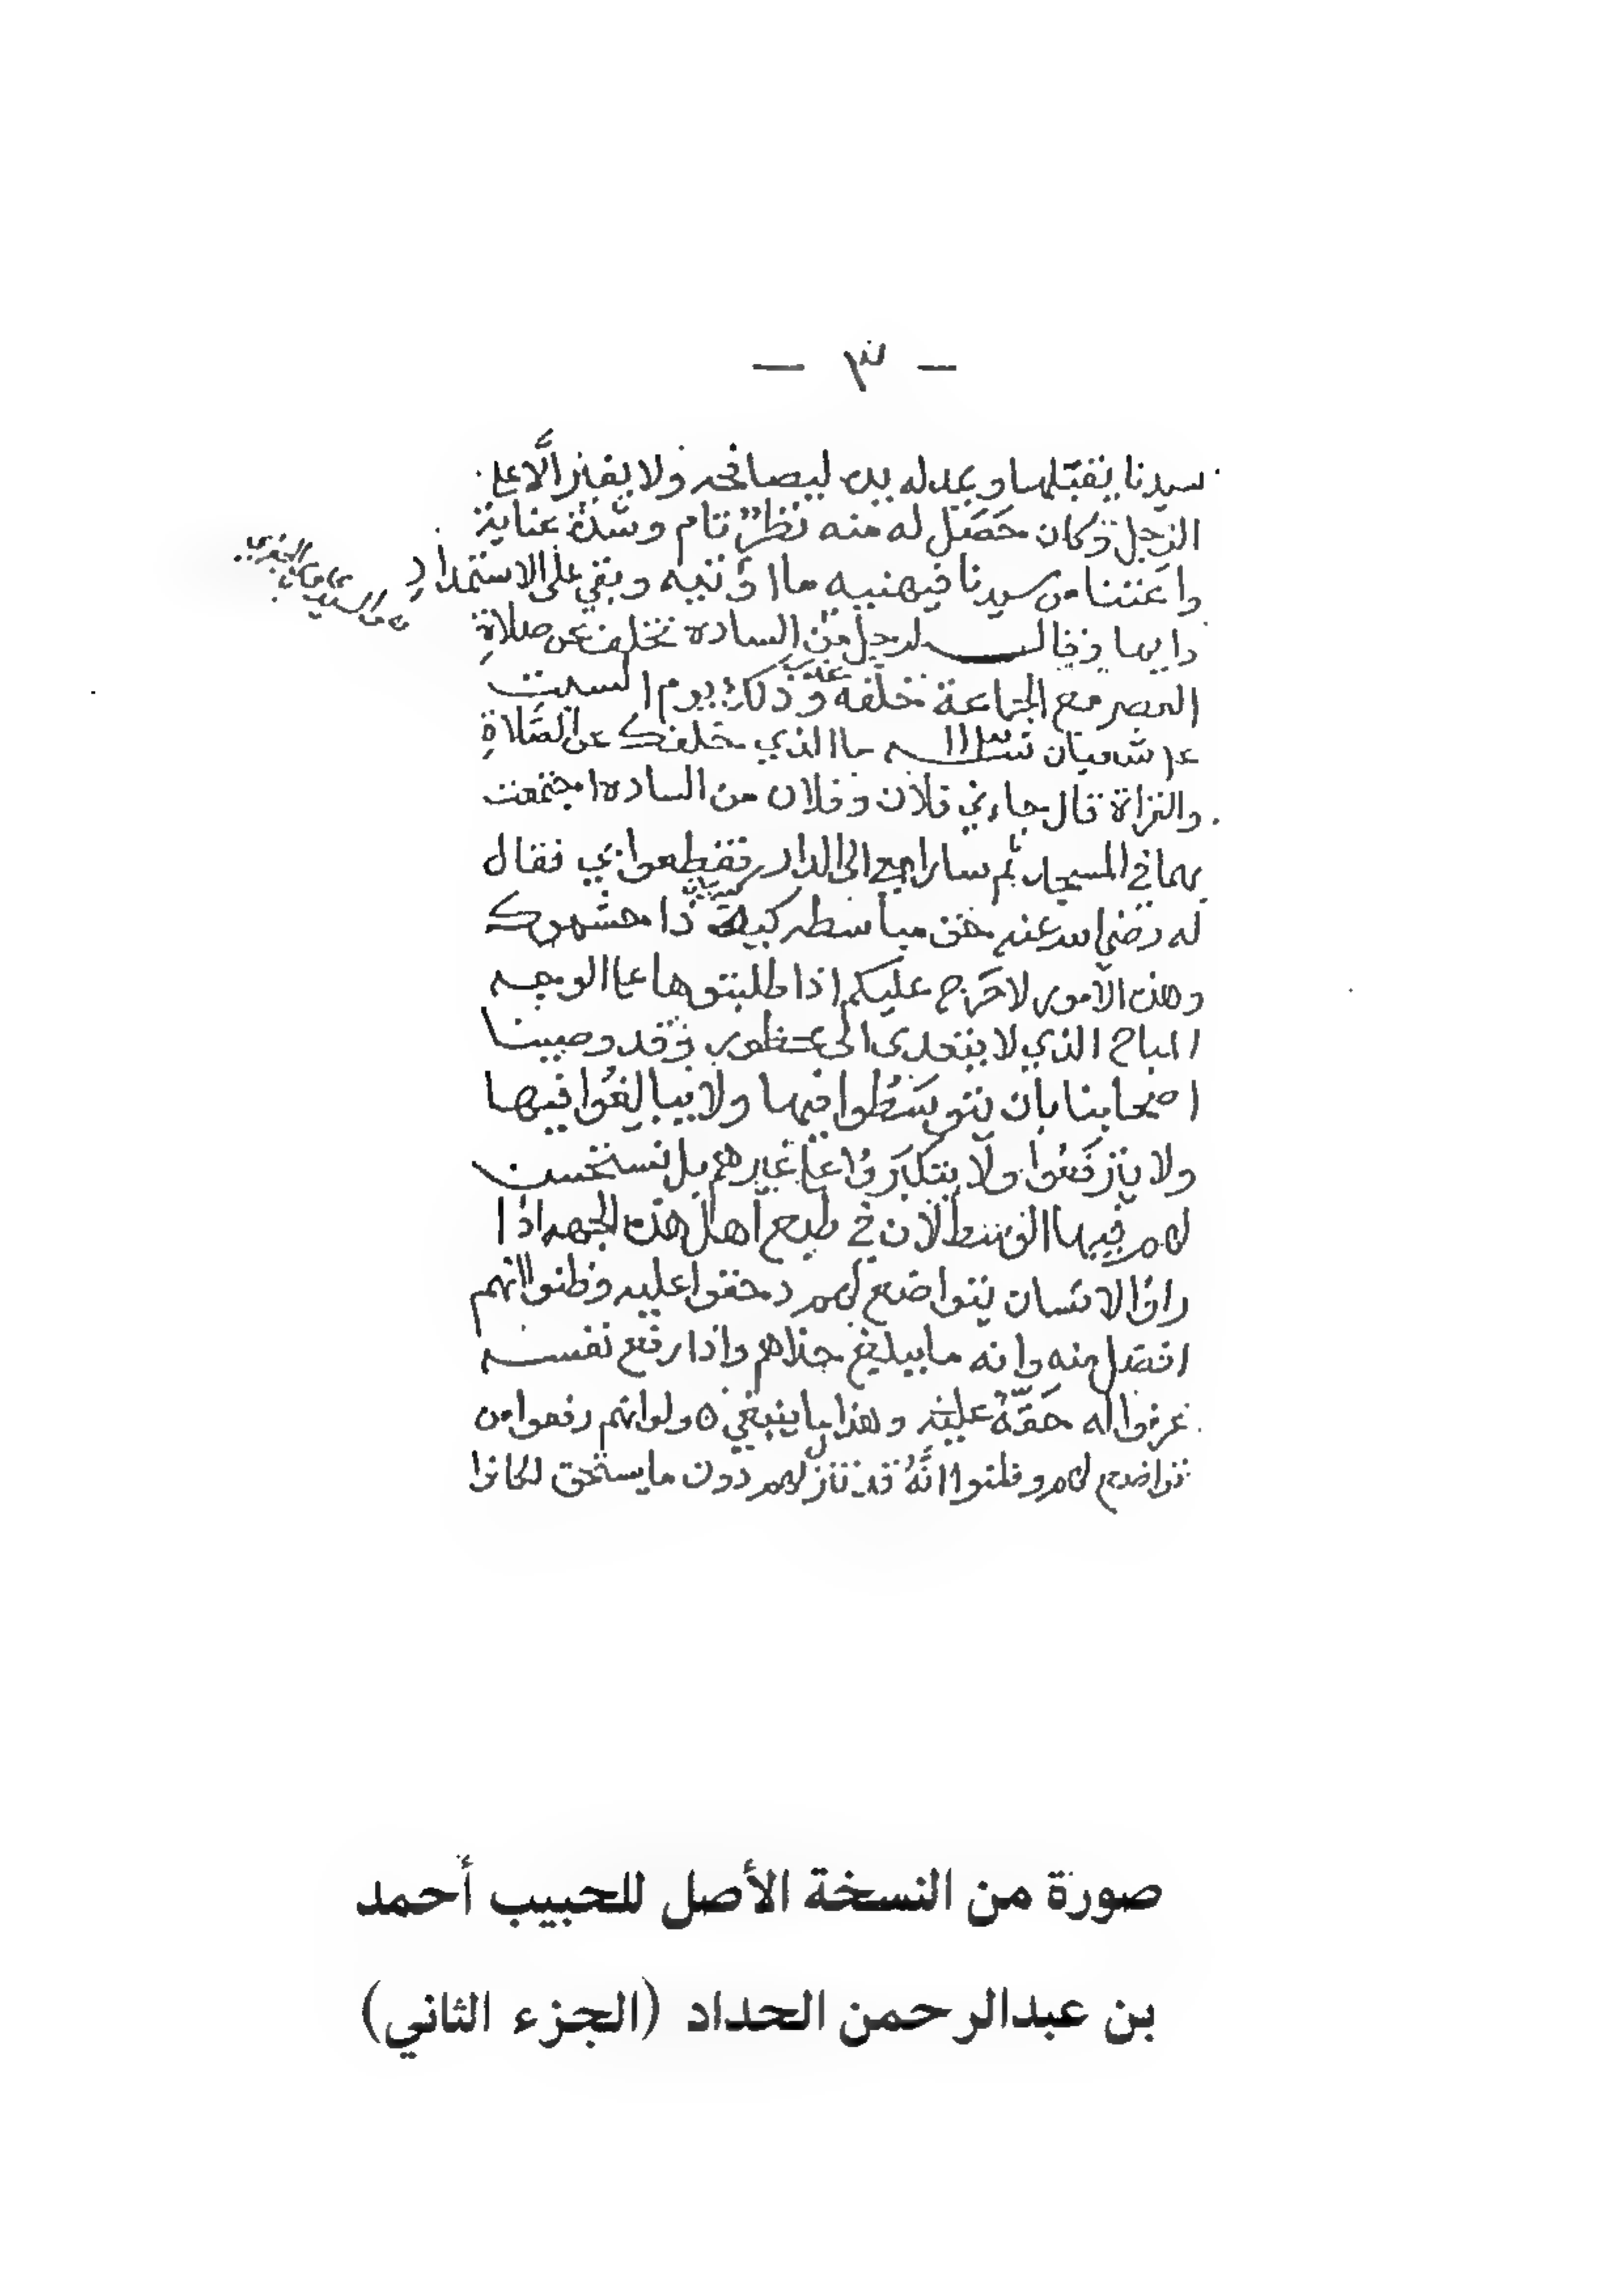 — ٣ —
سيدنا يقبّلها ويمد له يده ليصافحه ولا يقبز الّا على
الرجل وكان حَصَل له منه نظرٌ تام وشدة عناية
واعتنا من سيدنا فيهنيه ما اوتيه وبقي على الاستمدادِ
دايما وقال لرجل من السادة تخلف عن صلاةِ
العصر مع الجماعة خلفه وذلك يوم السبت
شعبان ما الذي خلفك عن الصّلاةِ
والقراة قال جاءني فلان وفلان من السادة اجتمعت
بهما في المسجد ثم سا راجع الى الدار فقطعوا بي فقال
له رضي الله عنه
وهذه الامور لا حَرَج عليكم اذا طلبتوها على الوجه
المباح الذي لا يتعدى الى محظور وقد وصينا
اصحابنا بأن يتوسَّطُوا فيها ولا يبالغُوا فيها
ولا يترفَّعُوا ولا يتكبَرَوُا على غيرهم بل نستحسن
لهم فيها التوسط لان في طبع أهل هذه الجهة اذا
راوا الانسان يتواضع لهم دحقوا عليه وظنوا انهم
افضل منه وانه ما يبلغ حذاهم واذا رفع نفسه
عرفوا له حَقّهُ عليهم وهذا ما ينبغي ٥ ولو انهم رفعوا من
تواضع لهم وظنوا انَّهُ قد تنزل لهم دون ما يستحق لكانوا
صورة من النسخة الأصل للحبيب أحمد
بن عبدالرحمن الحداد (الجزء الثاني)